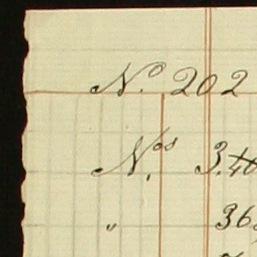 N.º 202
N.ºs 3.40
" 36